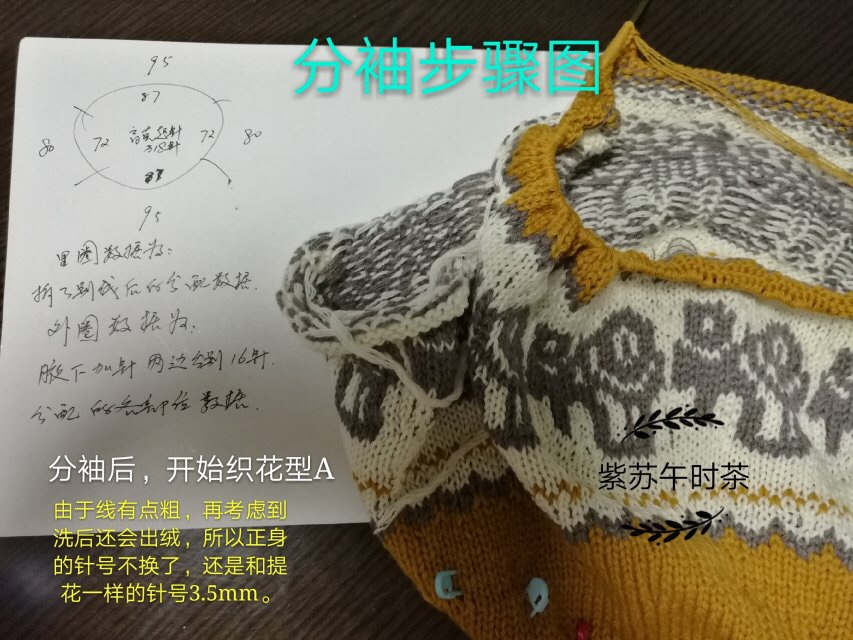 分袖步骤图
95
87
80
72
共318针
72
80
95
里圈数据为:
拆了别线后的分配数据.
外圈数据为:
腋下加针 两边各到16针.
分配的各部位数据.
分袖后，开始织花型A
由于线有点粗，再考虑到
洗后还会出绒，所以正身
的针号不换了，还是和提
花一样的针号3.5mm。
紫苏午时茶